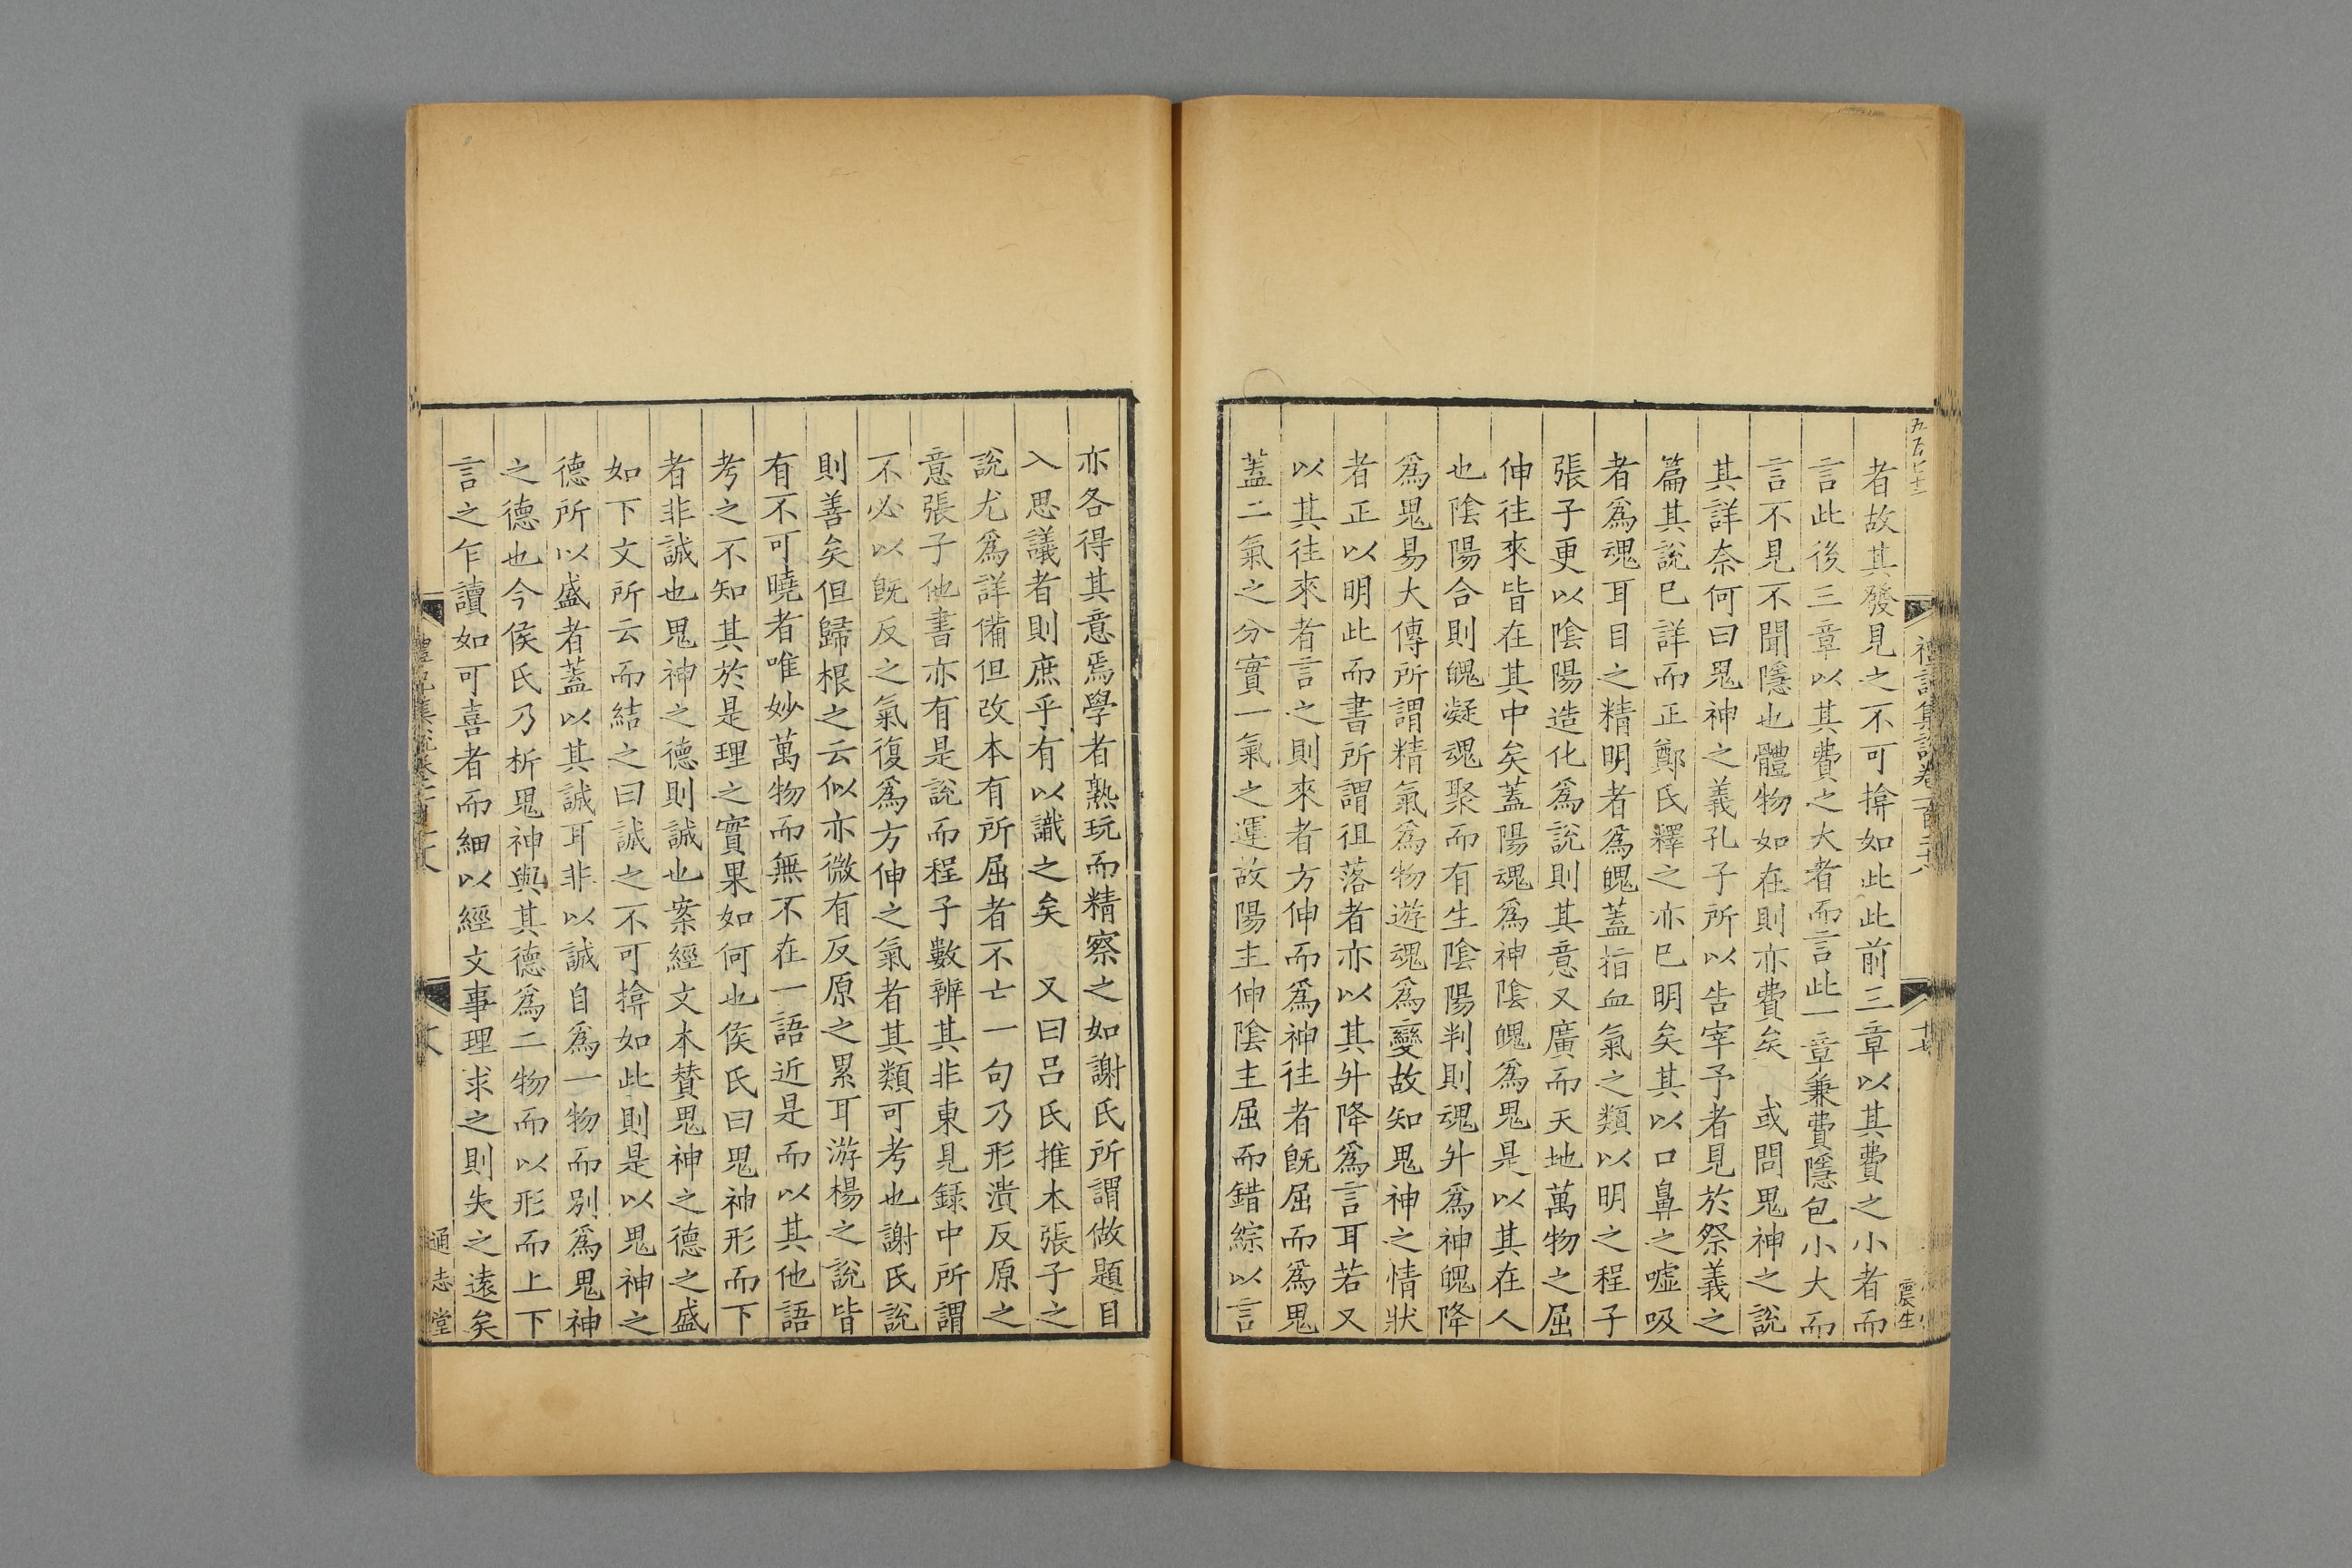 者故其發見之不可揜如此此前三章以其費之小者而
言此後三章以其費之大者而言此一章兼費隱包小大而
言不見不聞隱也體物如在則亦費矣　或問鬼神之說
其詳奈何曰鬼神之義孔子所以告宰予者見於祭義之
篇其說已詳而正鄭氏釋之亦已明矣其以口鼻之噓吸
者爲魂耳目之精明者爲魄蓋指血氣之類以明之程子
張子更以陰陽造化爲說則其意又廣而天地萬物之屈
伸往來皆在其中矣蓋陽魂爲神陰魄爲鬼是以其在人
也陰陽合則魄凝魂聚而有生陰陽判則魂升爲神魄降
爲鬼易大傳所謂精氣爲物遊魂爲變故知鬼神之情狀
者正以明此而書所謂徂落者亦以其升降爲言耳若又
以其往來者言之則來者方伸而爲神往者既屈而爲鬼
蓋二氣之分實一氣之運故陽主伸陰主屈而錯綜以言
亦各得其意焉學者熟玩而精察之如謝氏所謂做題目
入思議者則庶乎有以識之矣　又曰呂氏推本張子之
說尤爲詳備但改本有所屈者不亡一句乃形潰反原之
意張子他書亦有是說而程子數辨其非東見錄中所謂
不必以既反之氣復爲方伸之氣者其類可考也謝氏說
則善矣但歸根之云似亦微有反原之累耳游楊之說皆
有不可曉者唯妙萬物而無不在一語近是而以其他語
考之不知其於是理之實果如何也侯氏曰鬼神形而下
者非誠也鬼神之德則誠也案經文本贊鬼神之德之盛
如下文所云而結之曰誠之不可揜如此則是以鬼神之
德所以盛者蓋以其誠耳非以誠自爲一物而別爲鬼神
之德也今侯氏乃析鬼神與其德爲二物而以形而上下
言之乍讀如可喜者而細以經文事理求之則失之遠矣
禮記集說卷一百二十八
十七
震生
通志堂